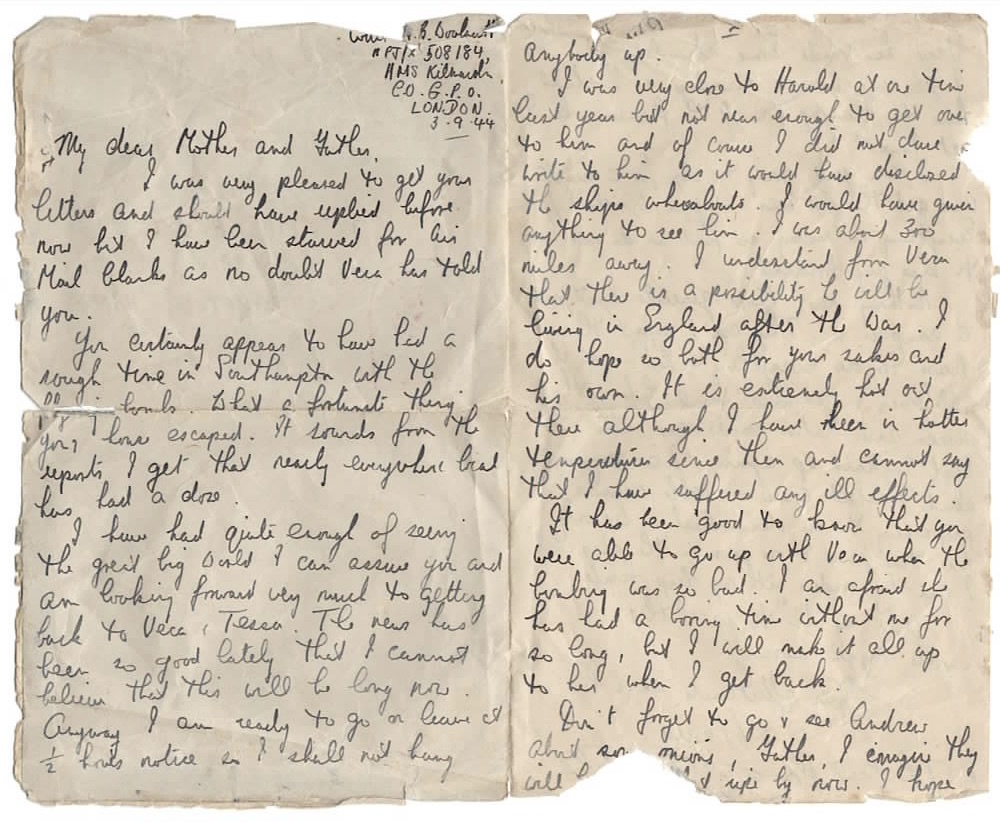 508184,
HMS Kilmarnock,
C.O. G.P.O.
LONDON.
3-9-44
My dear Mother and Father,
I was very pleased to get your
letters and should have replied before
now but I have been starved for Air
Mail blanks as no doubt Vera has told
you.
You certainly appear to have had a
rough time in Southampton with the
bombs. What a fortunate thing
you have escaped. It sounds from the
reports I get that nearly everywhere local
has had a dose.
I have had quite enough of seeing
the great big World I can assure you and
am looking forward very much to getting
back to Vera & Tessa. The news has
been so good lately that I cannot
believe that this will be long now.
Anyway I am ready to go on leave at
½ hours notice so I shall not hang
Anybody up.
I was very close to Harold at one time
last year but not near enough to get over
to him and of course I did not dare
write to him as it would have disclosed
the ships whereabouts. I would have given
anything to see him. I was about 300
miles away. I understand from Vera
that there is a possibility he will be
living in England after the War. I
do hope so both for your sakes and
his own. It is extremely hot out
there although I have been in hotter
temperatures since then and cannot say
that I have suffered any ill effects.
It has been good to know that you
were able to go up with Vera when the
bombing was so bad. I am afraid she
has had a boring time without me for
so long, but I will make it all up
to her when I get back.
Don't forget to go & see Andrew
about some onions, Father, I imagine they
will ripe by now. I hope